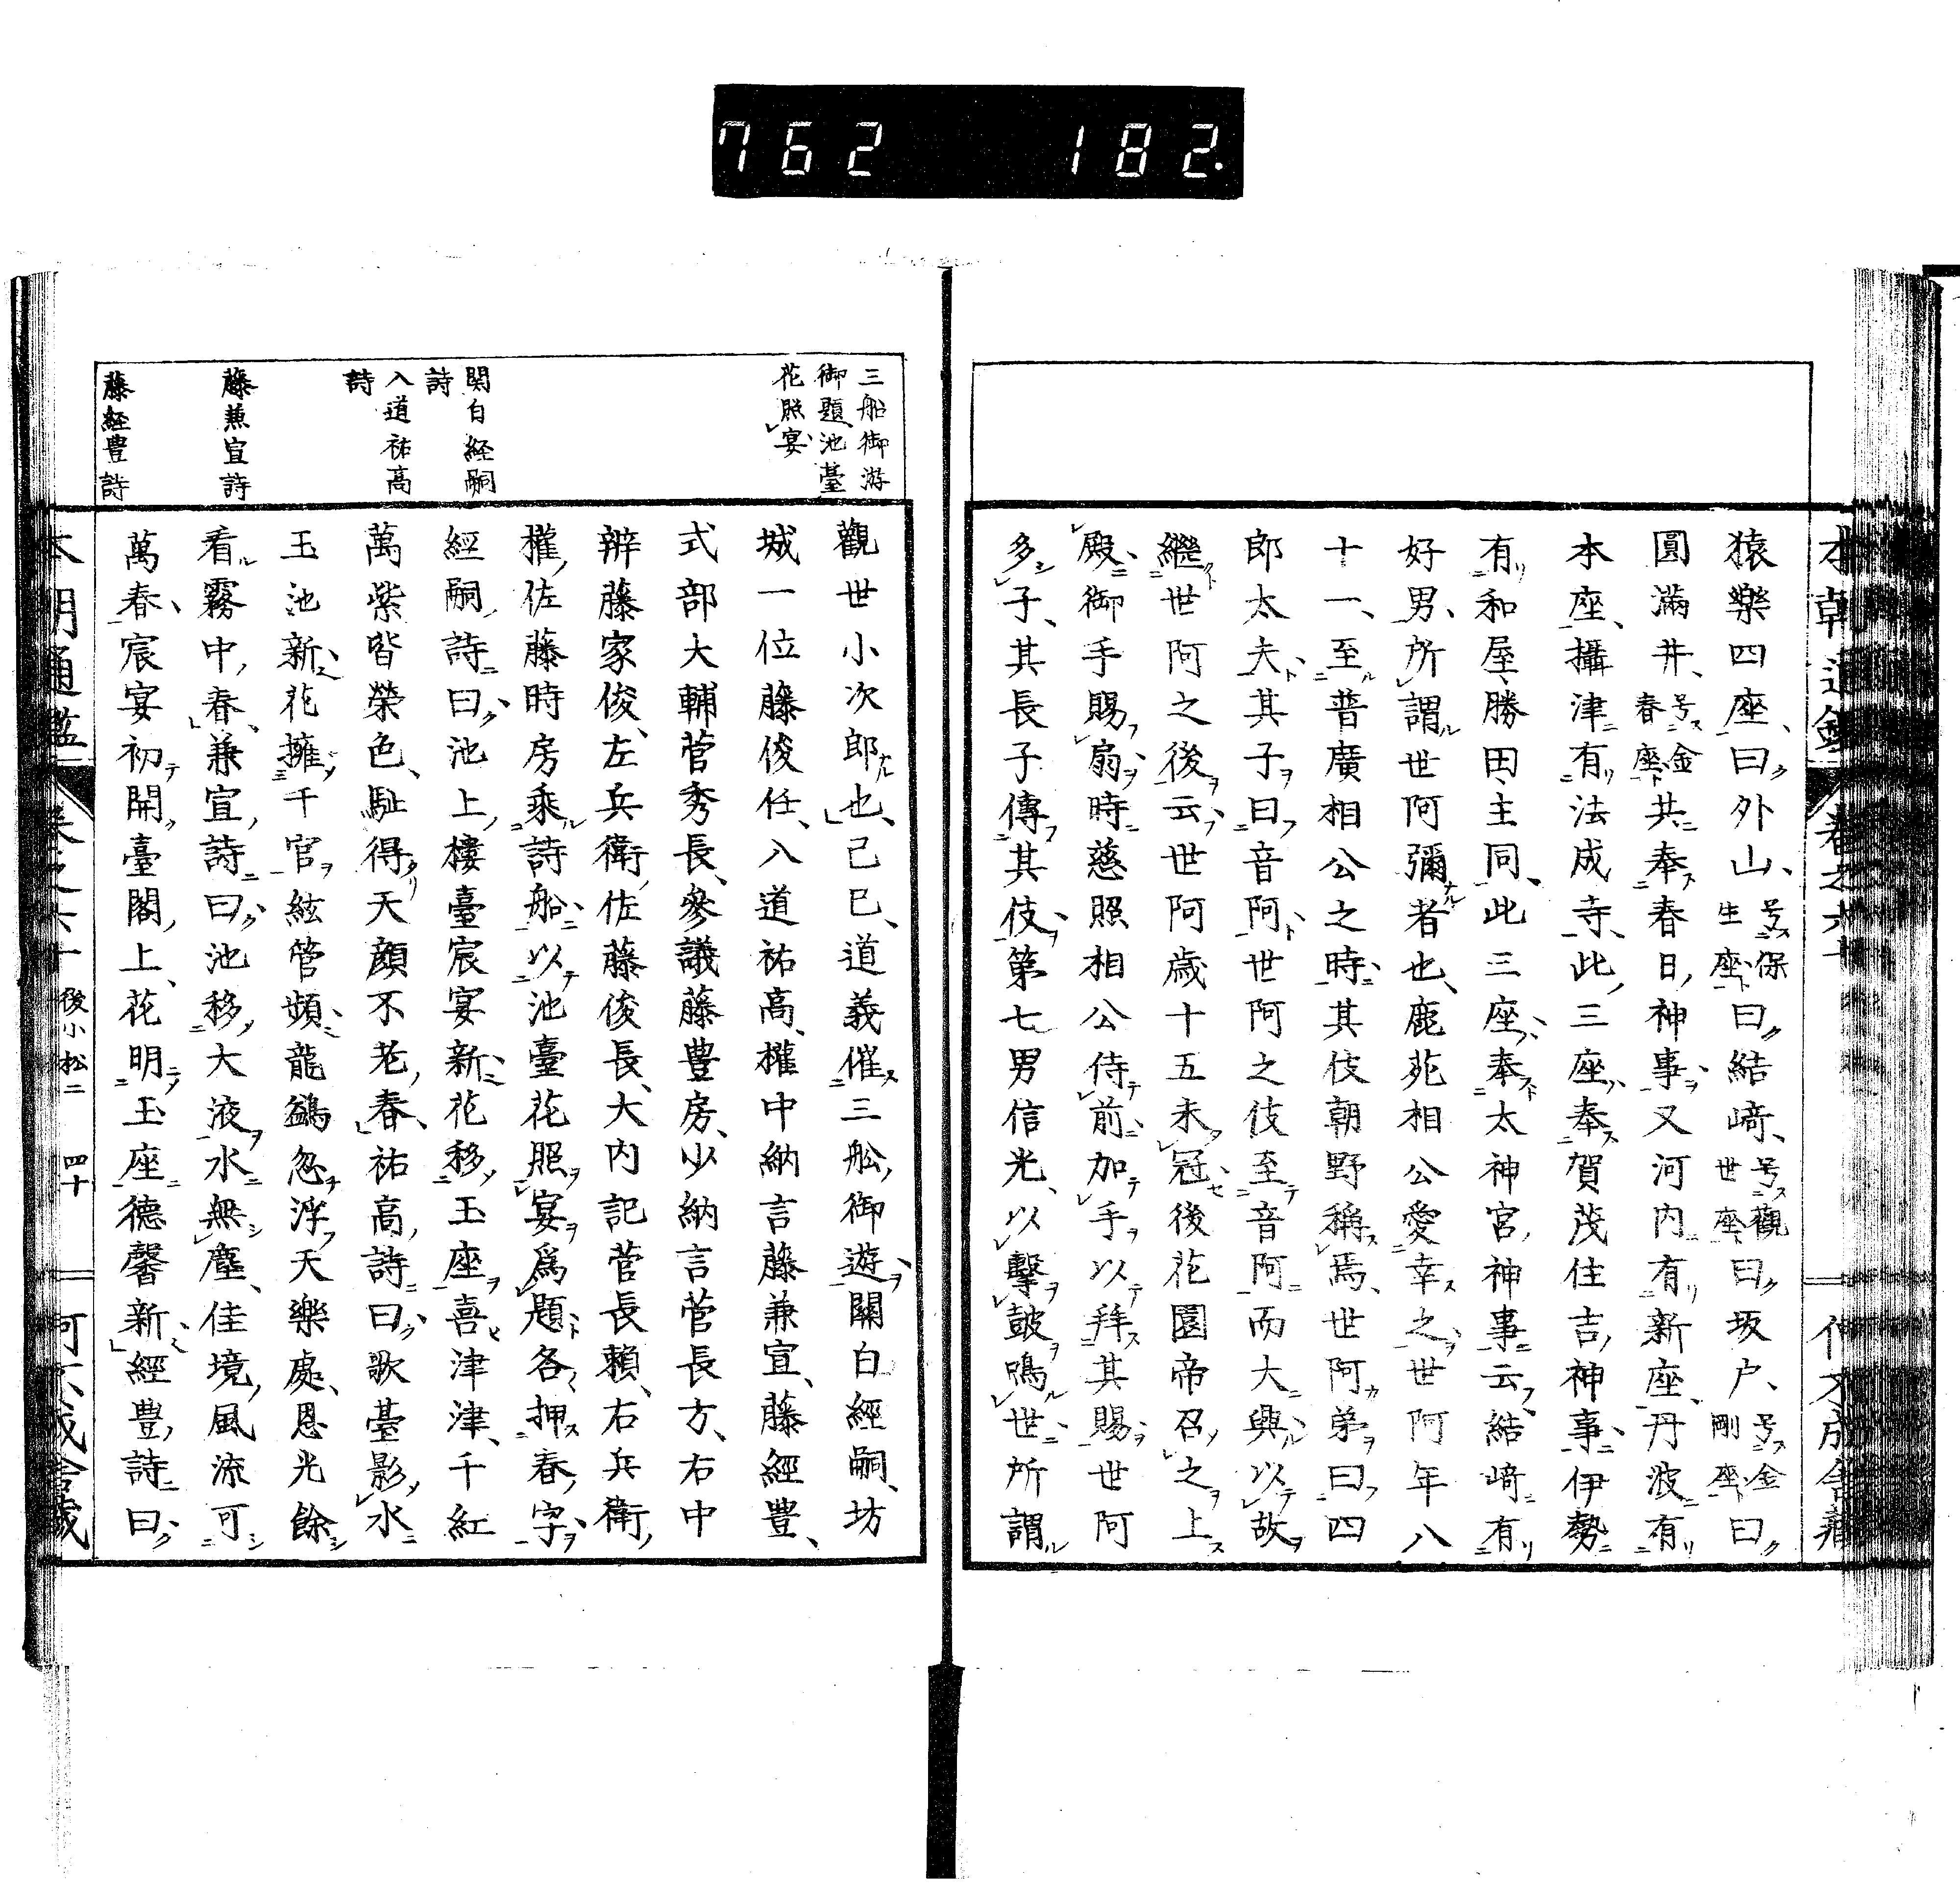 762 182.
猿樂四座、曰外山、号保生座曰結﨑、号觀世座曰坂戸、号金剛座曰
圓滿井、号金春座共奉春日神事又河内有新座、丹波有
本座、攝津有法成寺、此三座奉賀茂住吉神事、伊勢
有和屋、勝田、主同、此三座、奉太神宮神事云、結﨑有
好男、所謂世阿彌者也、鹿苑相公愛幸之、世阿年八
十一、至普廣相公之時、其伎朝野稱焉、世阿弟曰四
郎太夫、其子曰音阿、世阿之伎至音阿而大興、以故
繼世阿之後云、世阿歳十五未冠、後花園帝召之上
殿、御手賜扇、時慈照相公侍前、加手以拜其賜、世阿
多子、其長子傳其伎、第七男信光、以擊鼓鳴世、所謂
三船御游
御題池臺
花照宴
関白経嗣
詩
入道祐高
詩
藤兼宣詩
藤経豊詩
觀世小次郎也、己巳、道義催三舩御遊、關白經嗣、坊
城一位藤俊任、入道祐高、權中納言藤兼宣、藤經豊、
式部大輔菅秀長、參議藤豊房、少納言菅長方、右中
辨藤家俊、左兵衛佐藤俊長、大内記菅長賴、右兵衛
權佐藤時房乘詩船、以池臺花照宴爲題、各押春字、
經嗣詩曰、池上樓臺宸宴新、花移玉座喜津津、千紅
萬紫皆榮色、駐得天顔不老春、祐高詩曰、歌臺影水
玉池新、花擁千官絃管頻、龍鷁忽浮天樂處、恩光餘
看霧中春、兼宣詩曰、池移大液水無塵、佳境風流可
萬春、宸宴初開臺閣上、花明玉座德馨新、經豊詩曰、
本朝通鑑 卷之六十 後小松二 四十